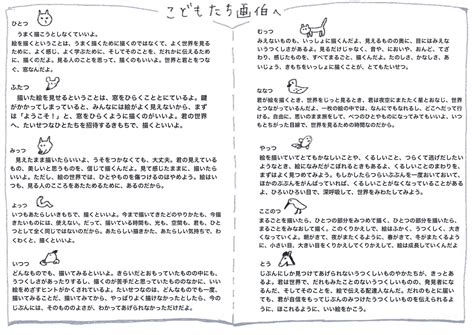 こどもたち画伯へ
ひとつ
うまく描こうとしなくていいよ。
絵を描くということは、うまく描くために描くのではなくて、よく世界を見るた
めに、よく感じ、よく学ぶために、そしてそのことを、だれかに伝えるため
に、描くのだよ。見る人のことを思って、描くのもいいよ。世界と君とをつな
ぐ、窓なんだよ。
ふたつ
描いた絵を見せるということは、窓をひらくことにているよ。鍵
がかかってしまっていると、みんなには絵がよく見えないから、まず
は「ようこそ！」と、窓をひらくように描くのがいいよ。君の世界
へ、たいせつなひとたちを招待するきもちで、描くといいよ。
みっつ
見えたまま描いたらいいよ。うそをつかなくても、大丈夫。君の見えている
もの、美しいと思うものを、信じて描くんだよ。見て感じたままに、描いたら
いいよ。ただし、絵の世界では、ひとやものを傷つけるのはやめよう。絵はい
つも、見る人のこころをあたためるために、あるのだから。
よっつ
いつもあたらしいきもちで、描くといいよ。今まで描いてきたどのやりかたも、今描
きたいものには、使えない。だって、描いている時間も、光も、空間も、君も、ひと
つとして全く同じではないのだから。あたらしい描きかた、あたらしい気持ちで、わ
くわくと、描くといいよ。
いつつ
どんなものでも、描いてみるといいよ。きらいだとおもっていたものの中にも、
うつくしさがあったりするし、描くのが苦手だと思っていたもののなかに、いい
絵をめざすヒントがかくされていたりするよ。たいせつなのは、どんなものでも一度、
描いてみることだ。描いてみてから、やっぱりよく描けなかったとしたら、今の
じぶんには、そのもののよさが、わかってあげられなかっただけだよ。
むっつ
みえないものも、いっしょに描くんだよ。見えるものの奥に、目にはみえな
いうつくしさがあるよ。見るだけじゃなく、音や、においや、おんど、てざ
わり、感じたものを、すべてまるごと、描くんだよ。たのしさ、かなしさ、あ
いじょう、きもちをいっしょに描くことが、とてもたいせつ。
ななつ
君が絵を描くとき、世界をじっと見るとき、君は夜空にまたたく星とおなじ、世界と
つながっているんだよ。一枚の絵の中では、なんにでもなれるし、どこへだって行
ける。自由に、思いのまま旅をして、べつのひとやものになってみてもいいよ。いつ
もとちがった目線で、世界を見るための時間なのだから。
やっつ
絵を描いていてとてもかなしいことや、くるしいこと、つらくて逃げだしたい
ようなとき、世界がどんなふうに見えるか、絵になにがおこるかをそのままに、
まずはよく見つめてみよう。もしかしたらつらいぶんを一度おいておいて、
ほかのぶぶんをがんばっていれば、くるしいことがなくなっていることがある
よ。ひろいひろい目で、深呼吸して、世界をみわたしてみよう。
ここのつ
まるごとを描いたら、ひとつの部分をみつめて描く、ひとつの部分を描いたら、
まるごとをみなおして描く。このくりかえしで、絵はふかく、うつくしく、大き
くなっていくよ。朝がきて、夜がまたくるように、春がきて、冬がまたくるよう
に、小さい目、大きい目をくりかえしくりかえして、絵は成長していくんだよ。
とう
じぶんにしか見つけてあげられないうつくしいものやかたちが、きっとあ
るよ。君は世界で、だれもみたことのないうつくしいものの、発見者にな
るんだ。そしてそのことを、絵で伝える配達人なんだよ。だれのものとに届い
ても、君が自信をもってじぶんのみつけたうつくしいものを伝えられるよ
うに、ほこれるように、いい絵をかこう。